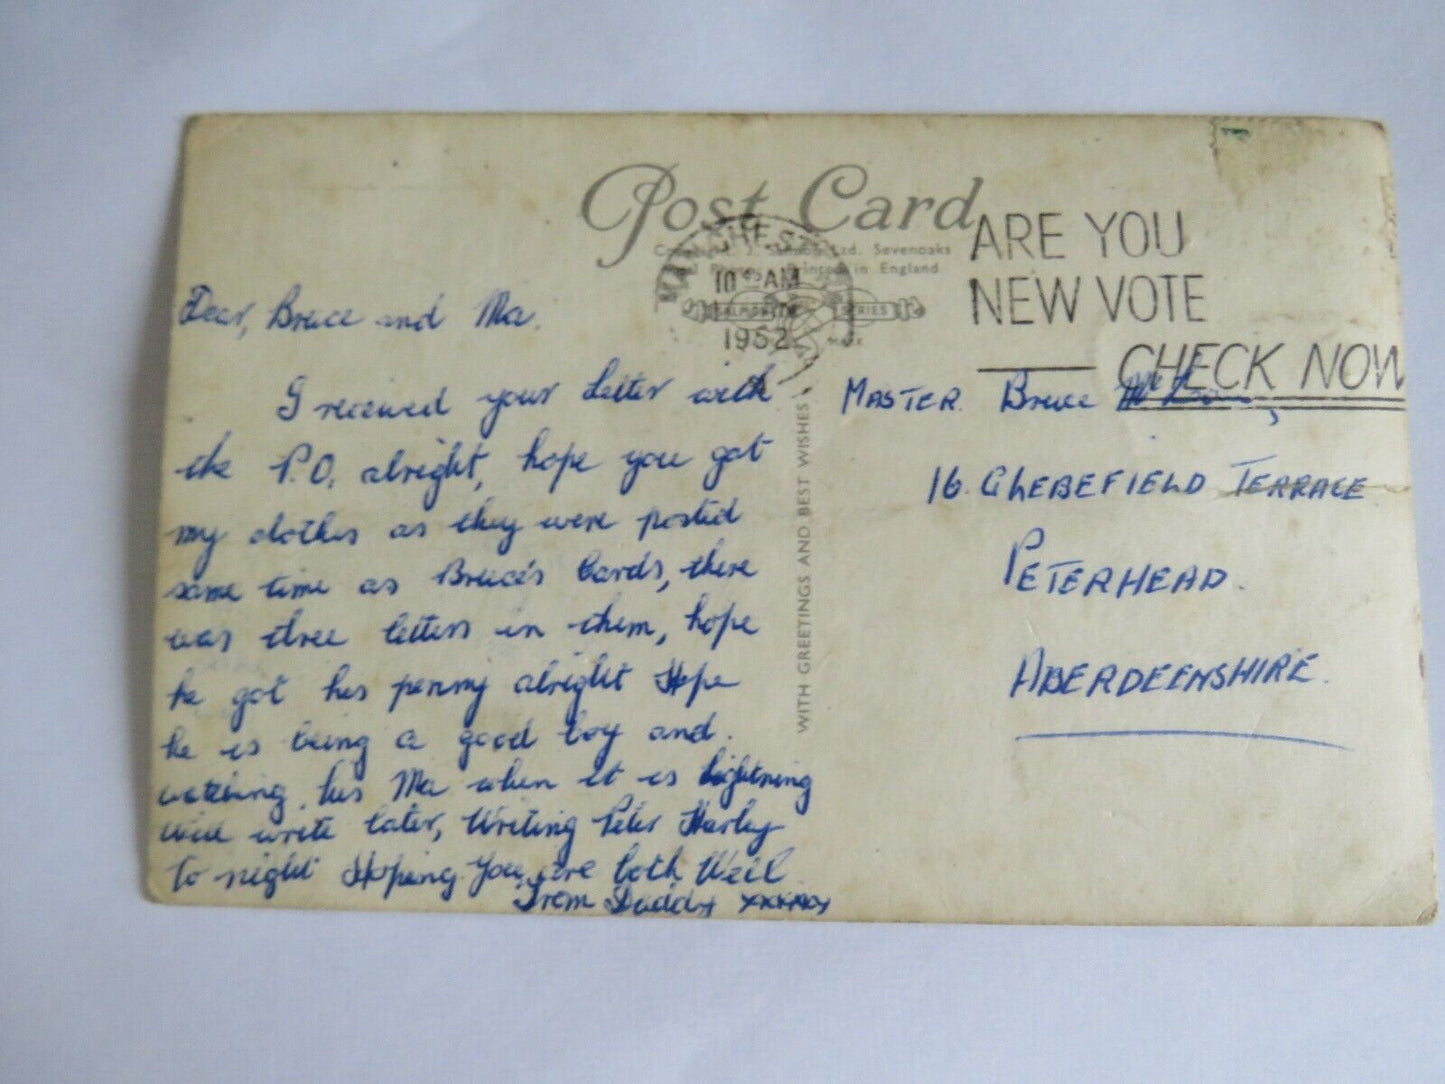 Post Card
Copyright J. Salmon Ltd. Sevenoaks
Printed in England
MANCHESTER
10 45 AM
1962
SALMON SERIES
ARE YOU
NEW VOTE
CHECK NOW
Dear, Bruce and Ma.
I received your Letter with
the P.O. alright, hope you got
my clothes as they were posted
same time as Bruce's Cards, there
was three letters in them, hope
he got his penny alright Hope
he is being a good boy and.
watching his Ma when it is lightning
will write later, Writing Peter Harley
to night Hoping You are both Well.
From Daddy xxxxxx
WITH GREETINGS AND BEST WISHES
MASTER Bruce
16. GLEBEFIELD TERRACE
PETERHEAD.
ABERDEENSHIRE.